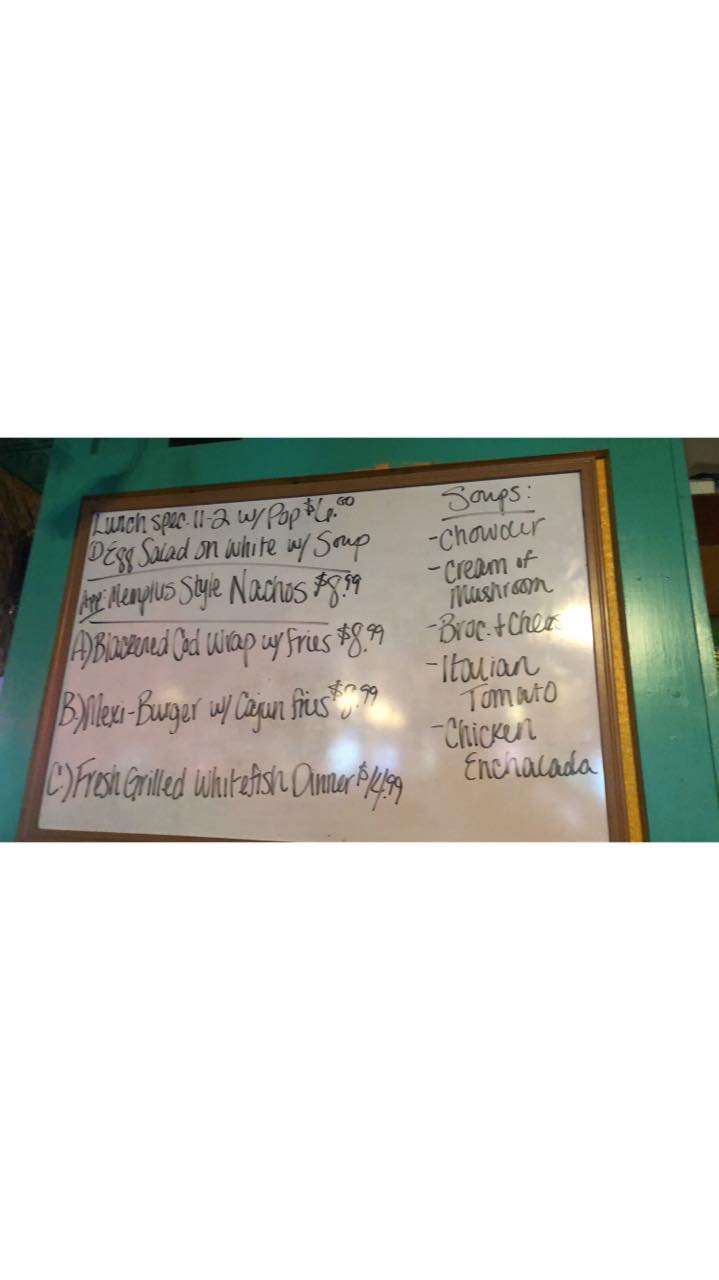 Lunch spec. 11-2 w/ Pop $6.00
1) Egg Salad on white w/ Soup
App: Memphis Style Nachos $8.99
A) Blackened Cod Wrap w/ fries $8.99
B) Mexi-Burger w/ Cajun fries $8.99
C) Fresh Grilled Whitefish Dinner $14.99
Soups:
- Chowder
- Cream of
Mushroom
- Broc. + Chees
- Italian
Tomato
- Chicken
Enchalada